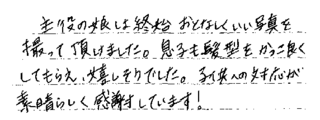 主役の娘は終始おとなしくいい写真を
撮って頂けました。息子も髪型をかっこ良く
してもらえ、嬉しそうでした。子供への対応が
素晴らしく感謝しています!